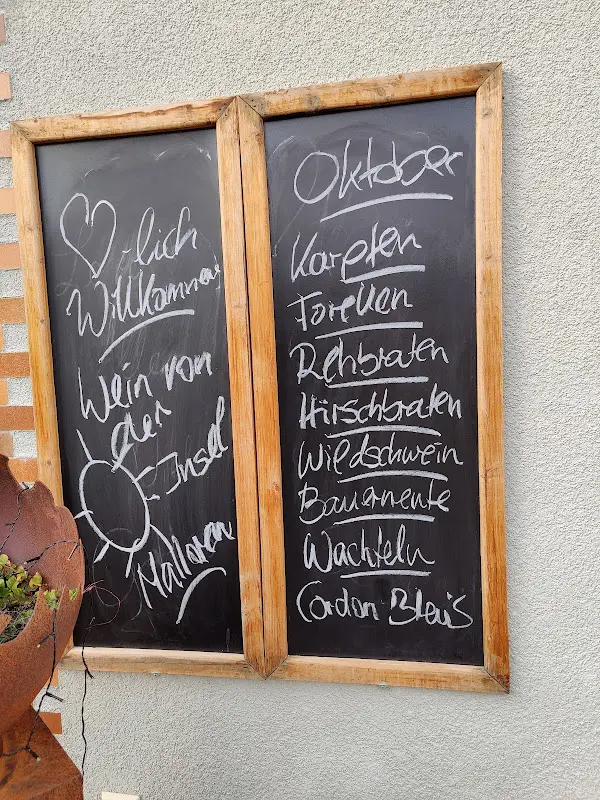 ♡-lich
Willkommen
Wein von
der
Insel
Mallorca
Oktober
Karpfen
Forellen
Rehbraten
Hirschbraten
Wildschwein
Bauernente
Wachteln
Cordon Bleu's